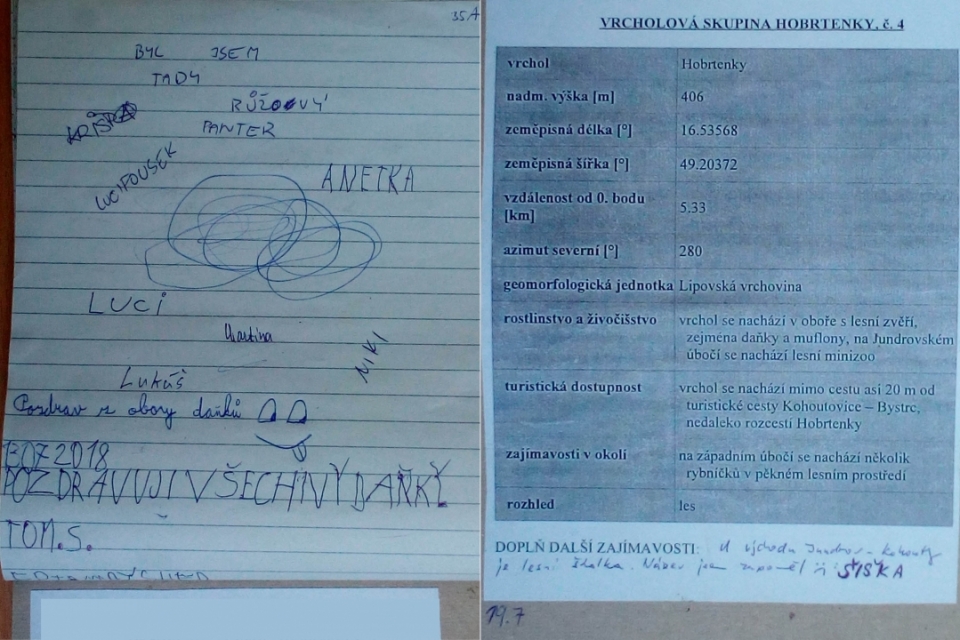 35A
BYL JSEM
TADY
RŮŽOVÝ
PANTER
LUCIFOUSEK
ANETKA
LUCI
Martina
NIKI
Lukáš
Pozdrav z obory daňků
13.07.2018
POZDRAVUJI VŠECHNY DAŇKY.
TOM.S.
VRCHOLOVÁ SKUPINA HOBRTENKY, č. 4
vrchol Hobrtenky
nadm. výška [m] 406
zeměpisná délka [°] 16.53568
zeměpisná šířka [°] 49.20372
vzdálenost od 0. bodu
[km] 5,33
azimut severní [°] 280
geomorfologická jednotka Lipovská vrchovina
rostlinstvo a živočišstvo vrchol se nachází v oboře s lesní zvěří,
zejmena daňky a muflony, na Jundrovském
úbočí se nachází lesní minizoo
turistická dostupnost vrchol se nachází mimo cestu asi 20 m od
turistické cesty Kohoutovice – Bystrc,
nedaleko rozcestí Hobrtenky
zajímavosti v okolí na západním úbočí se nachází několik
rybníčků v pěkném lesním prostředí
rozhled les
DOPLŇ DALŠÍ ZAJÍMAVOSTI: U východu Jundrov - Kohouty
je lesní školka. Název jsem zapomněl ŠIŠKA
19.7